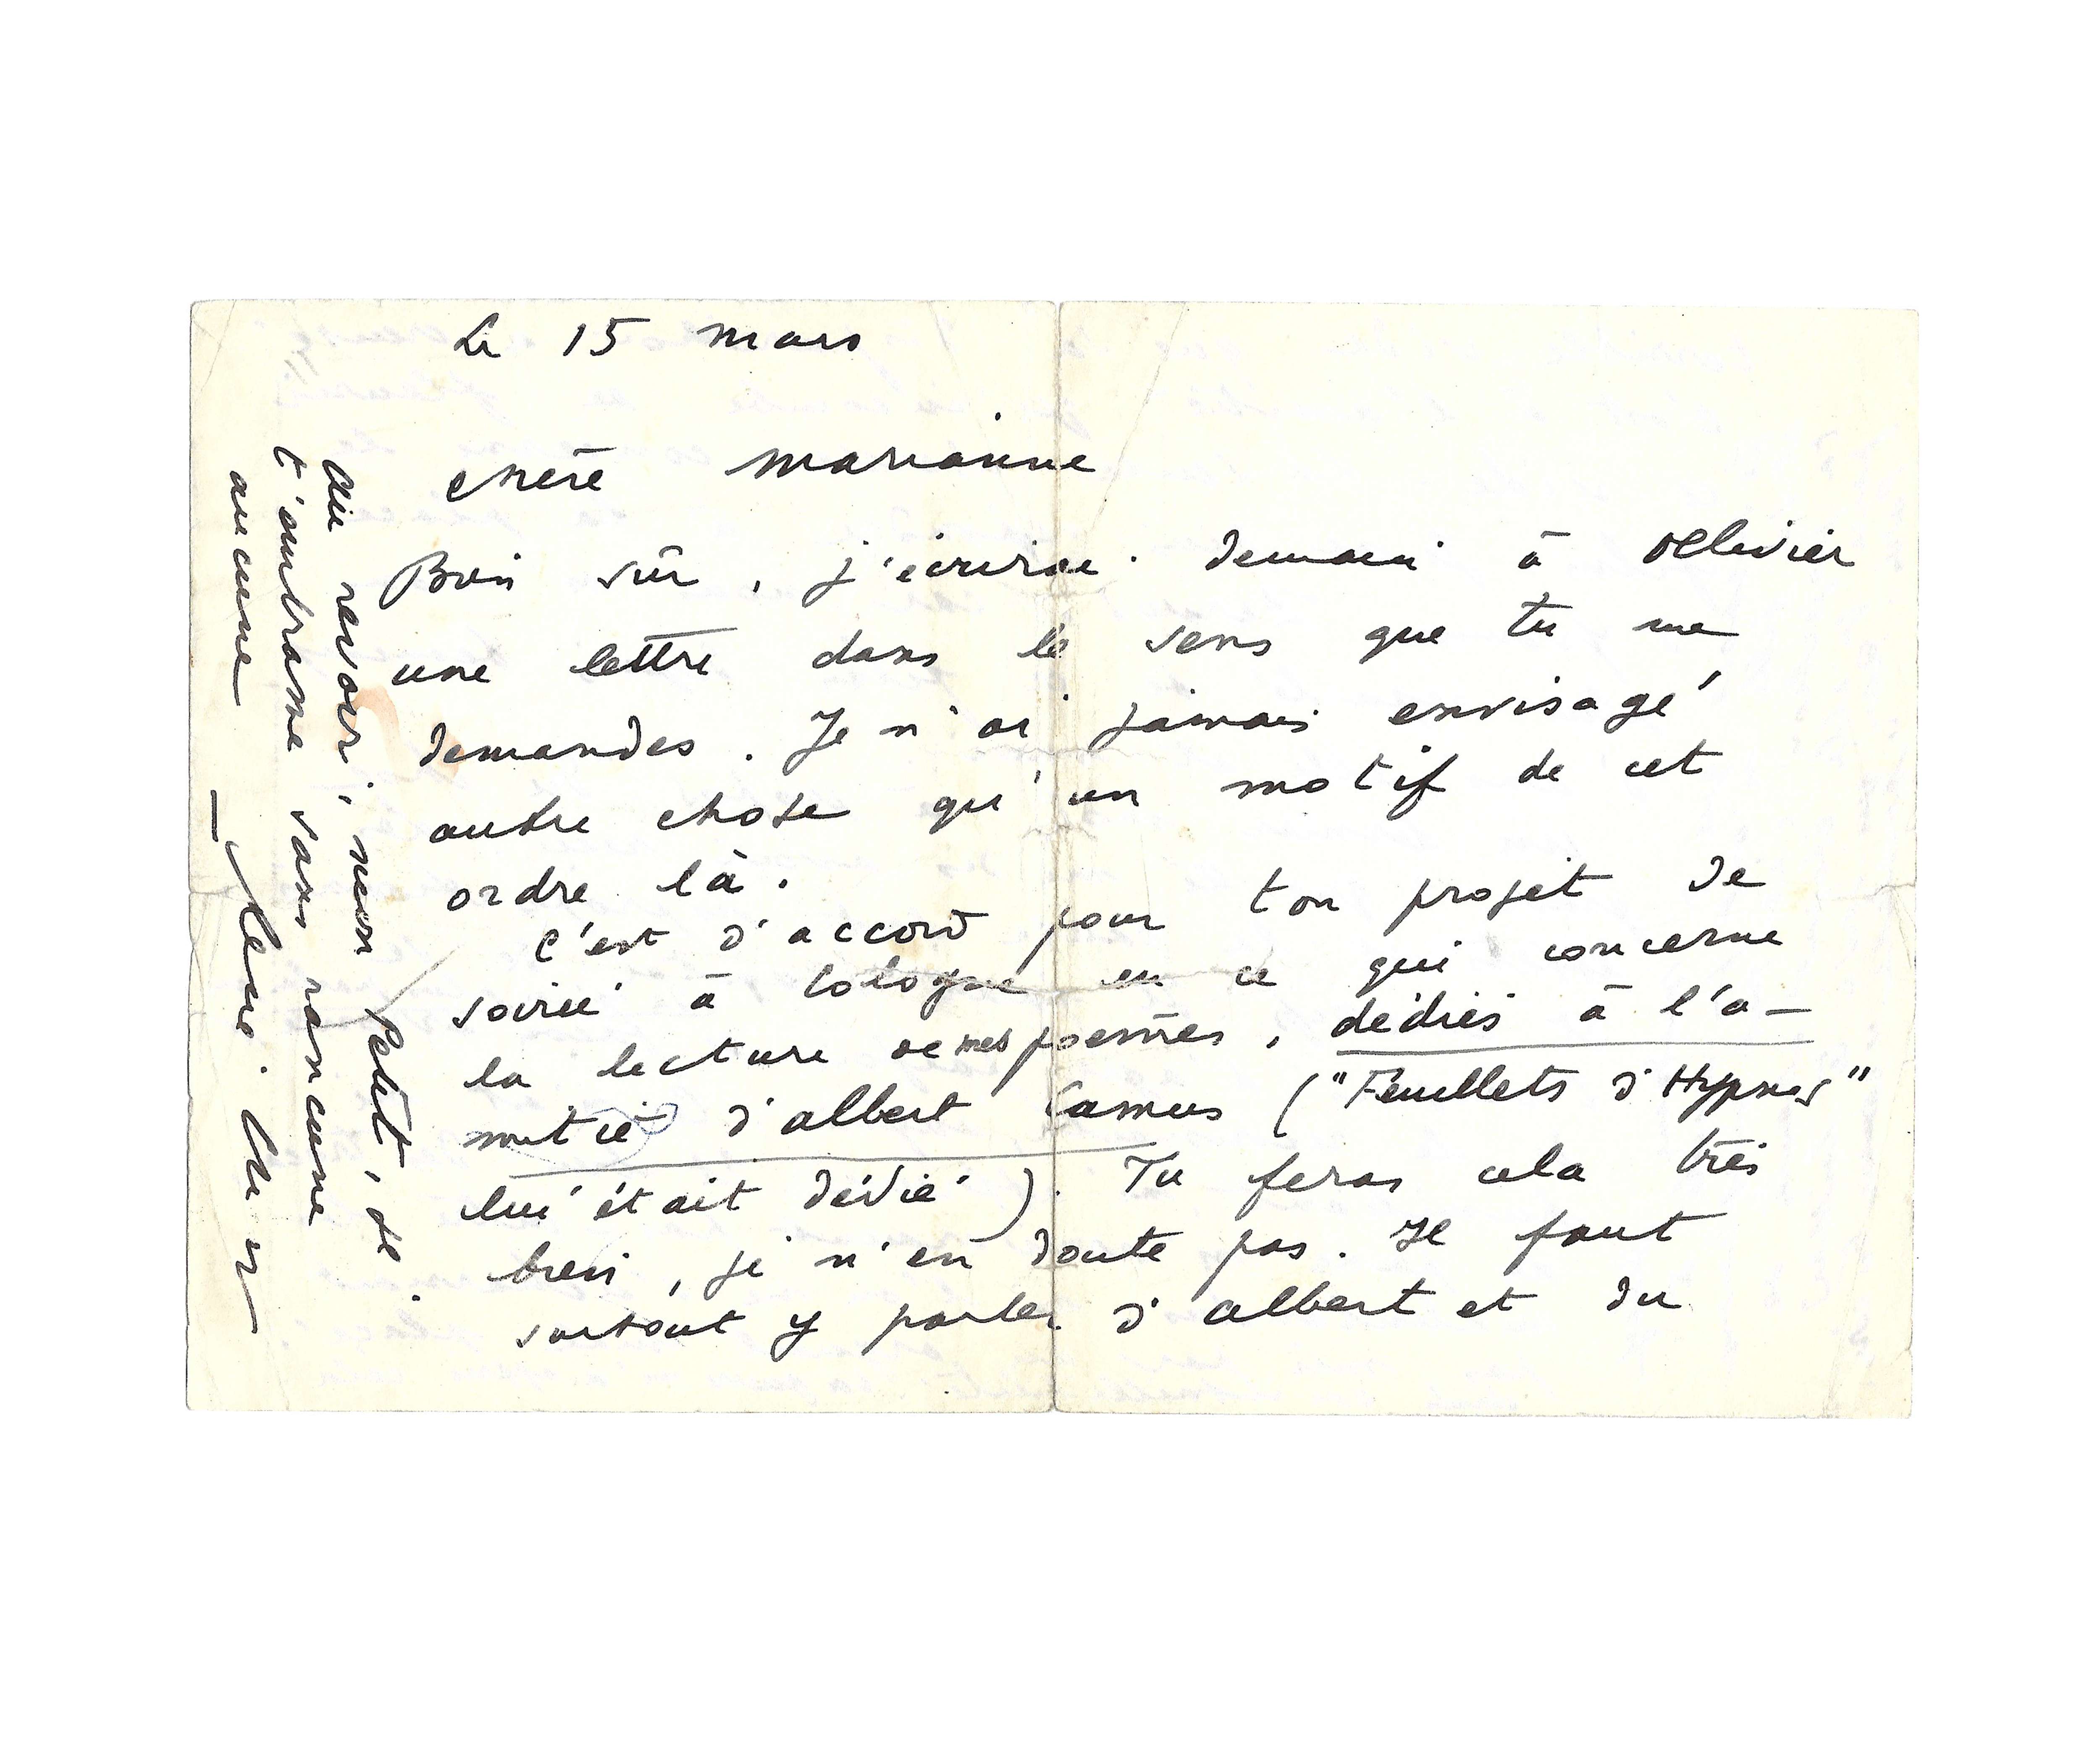 Le 15 mars
chère Marianne
Bien sûr, j'écrirai demain à Ollivier
une lettre dans le sens que tu me
demandes. Je n'ai jamais envisagé
autre chose qu'un motif de cet
ordre là.
C'est d'accord pour ton projet de
soirée à Cologne en ce qui concerne
la lecture de mes poèmes, dédiés à l'a-
mitié d'Albert Camus ("Feuillets d'Hypnos"
lui était dédié). Tu feras cela très
bien, je n'en doute pas. Il faut
surtout y parler d'Albert et du
Au revoir, mon Petit, je
t'embrasse sans rancune
aucune —